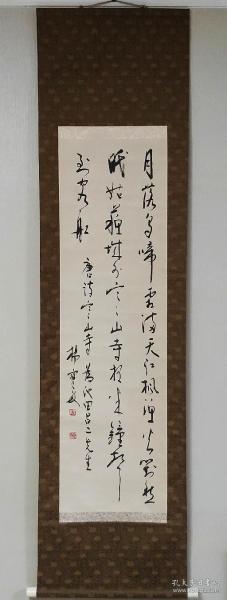 月落乌啼霜满天江枫渔火对愁
眠姑苏城外寒山寺夜半钟声
到客船
唐诗寒山寺 为池田吕二先生
杨
孔夫子旧书网